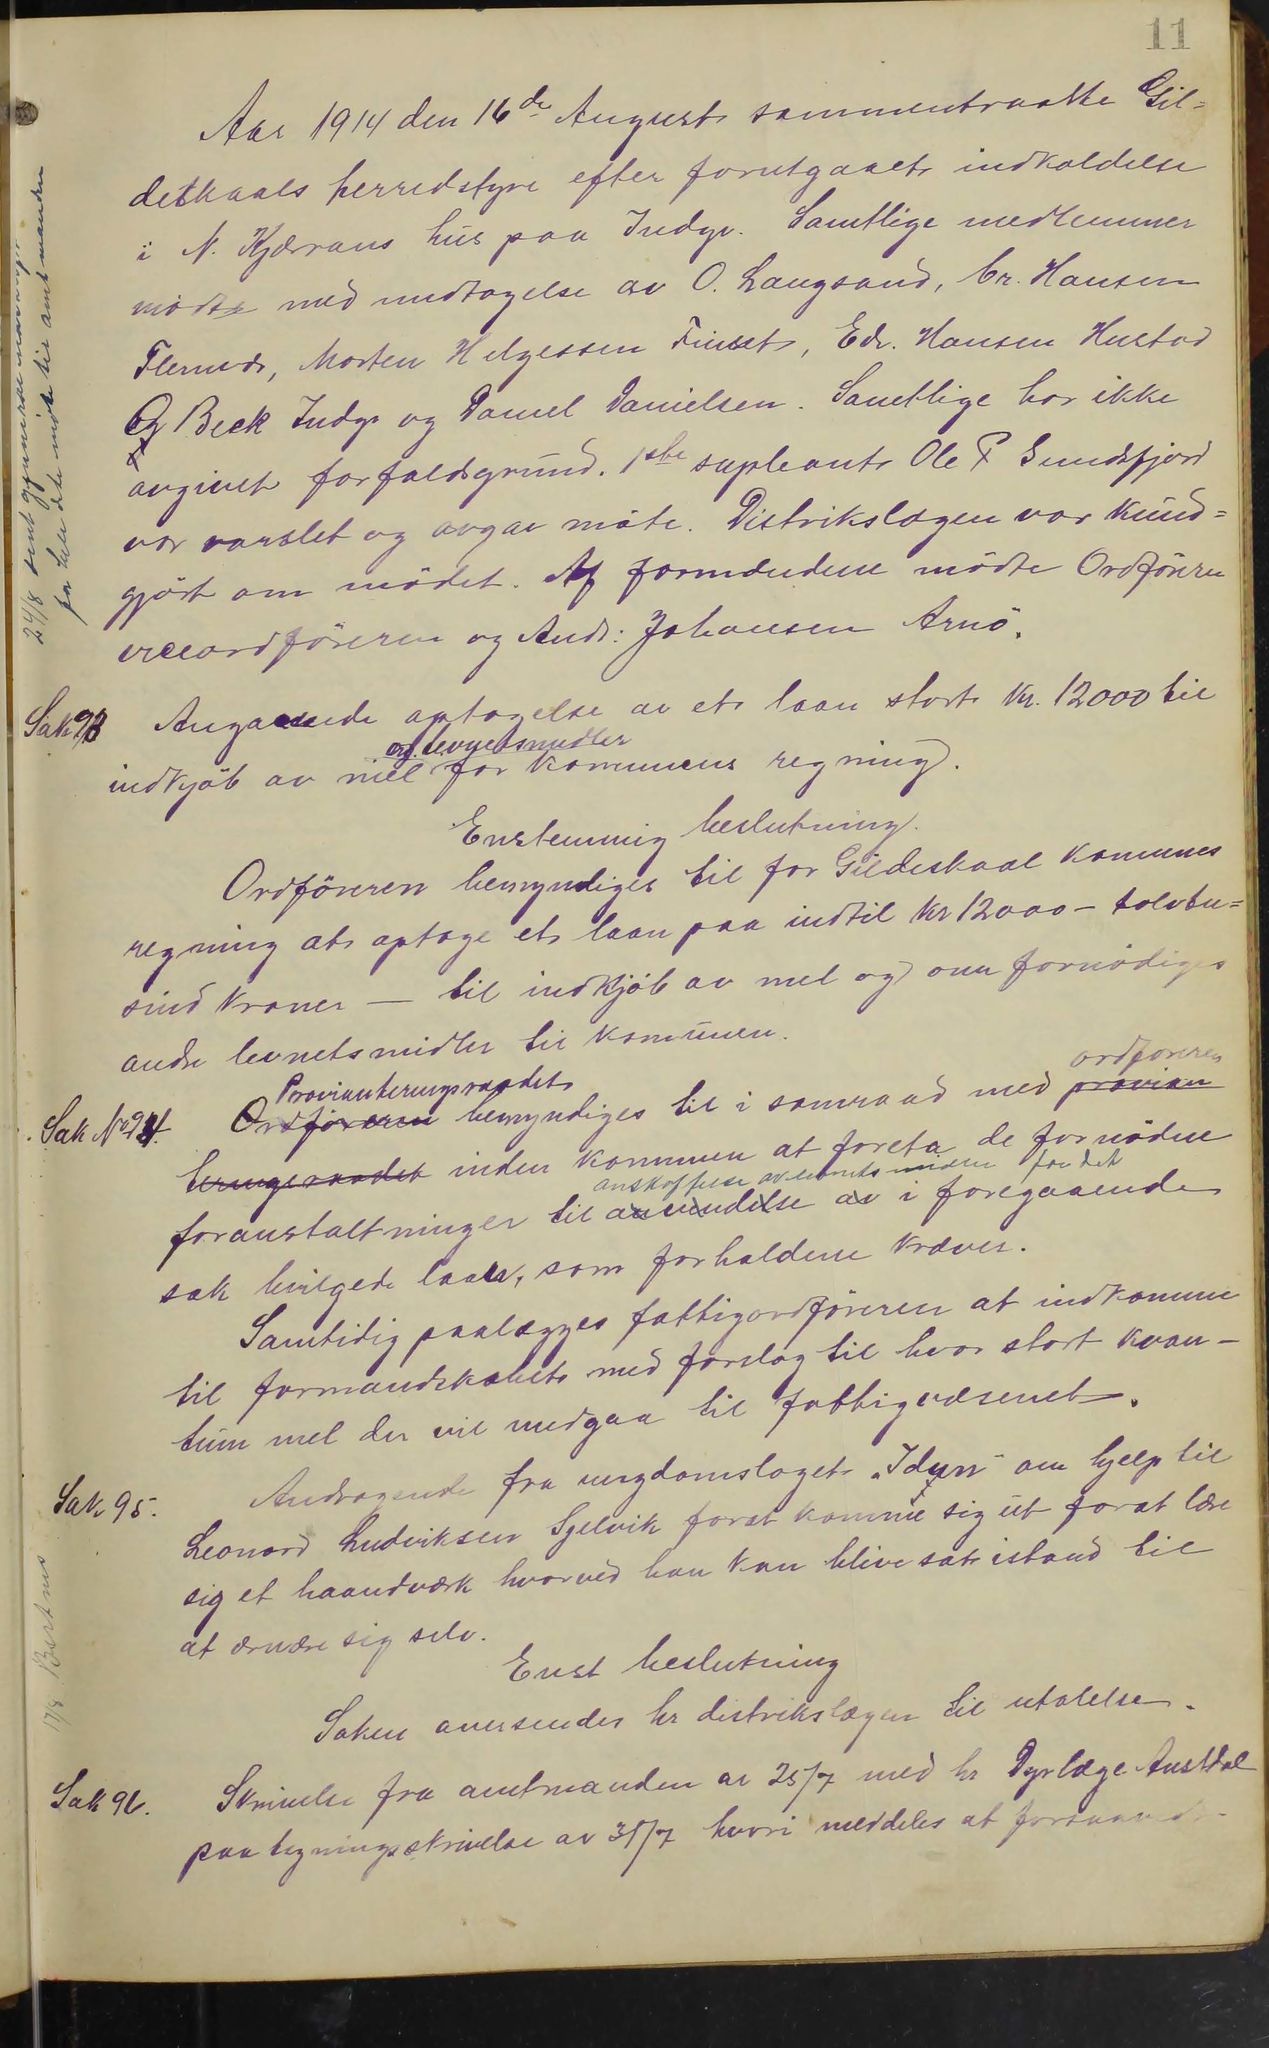 11
Aar 1914 den 16de August sammentraatte Gil=
deskaals herredstyre efter forutgaaet indkaldelse
i N. Kjærrans hus paa Indyr. Samtlige medlemmer
mødte med undtagelse av O. Langsand, Cr. Hansen
Fleines, Morten Helgessen Finset, Edv. Hansen Hustad
Og Beck Indyr og Daniel Danielsen. Samtlige har ikke
avgivet forfaldsgrund. 1ste supleant Ole P Sundsfjord
var varslet og avgav møte. Distrikslægen var kund=
gjört om mödet. Af formændene mödte Ordföreren
viceordföreren og Andr: Johansen Arnö.
Sak 93 Angaaende optagelse av et laan stort Kr. 12000 til
og levnetsmidler
indkjöb av mel for kommunens regning.
Enstemmig beslutning.
Ordföreren bemyndiges til for Gildeskaal kommunes
regning at optage et laan paa indtil Kr 12000 - tolvtu=
sind kroner — til indkjöb av mel og om fornödiges
andre levnetsmidler til kommunen.
Provianteringsraadet ordföreren
Sak No 94. Ordföreren bemyndiges til i samraad med provian
teringsraadet inden kommunen at foreta de fornödne
anskaffelse av levnetsmidler for det
foranstaltninger til anvendelse av i foregaaende
sak bevilgede laan, som forholdene kræver.
Samtidig paalægges fattigordföreren at indkomme
til formandskabet med forslag til hvor stort kvan-
tum mel der vil medgaa til fattigvæsenet.
Sak 95. Andragende fra ungdomslaget "Idun" om hjelp til
Leonard Ludviksen Sjelvik forat komme sig ut forat lære
sig et haandværk hvorved han kan blive sat istand til
at ernære sig selv.
Enst beslutning
Saken oversendes hr distrikslægen til utalelse.
Sak 96. Skrivelse fra amtmanden av 25/7 med hr Dyrlæge Austdal
paategningsskrivelse av 31/7 hvori meddeles at
24/8 sent
for hele dette möte til amtmanden
17/8